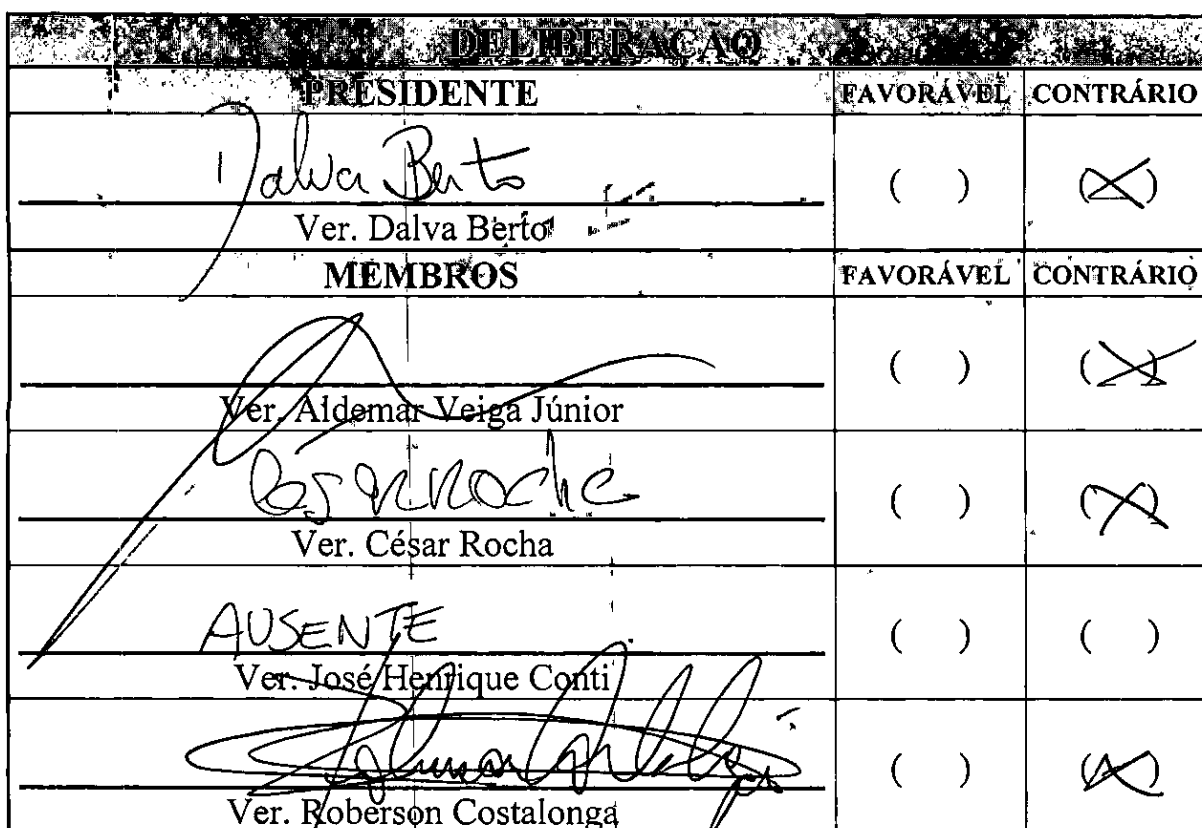 DELIBERAÇÃO
PRESIDENTE FAVORÁVEL CONTRÁRIO
Dalva Berto ( ) (X)
Ver. Dalva Berto
MEMBROS FAVORÁVEL CONTRÁRIO
( ) (X)
Ver. Aldemar Veiga Júnior
César Rocha ( ) (X)
Ver. César Rocha
AUSENTE ( ) ( )
Ver. José Henrique Conti
( ) (X)
Ver. Roberson Costalonga